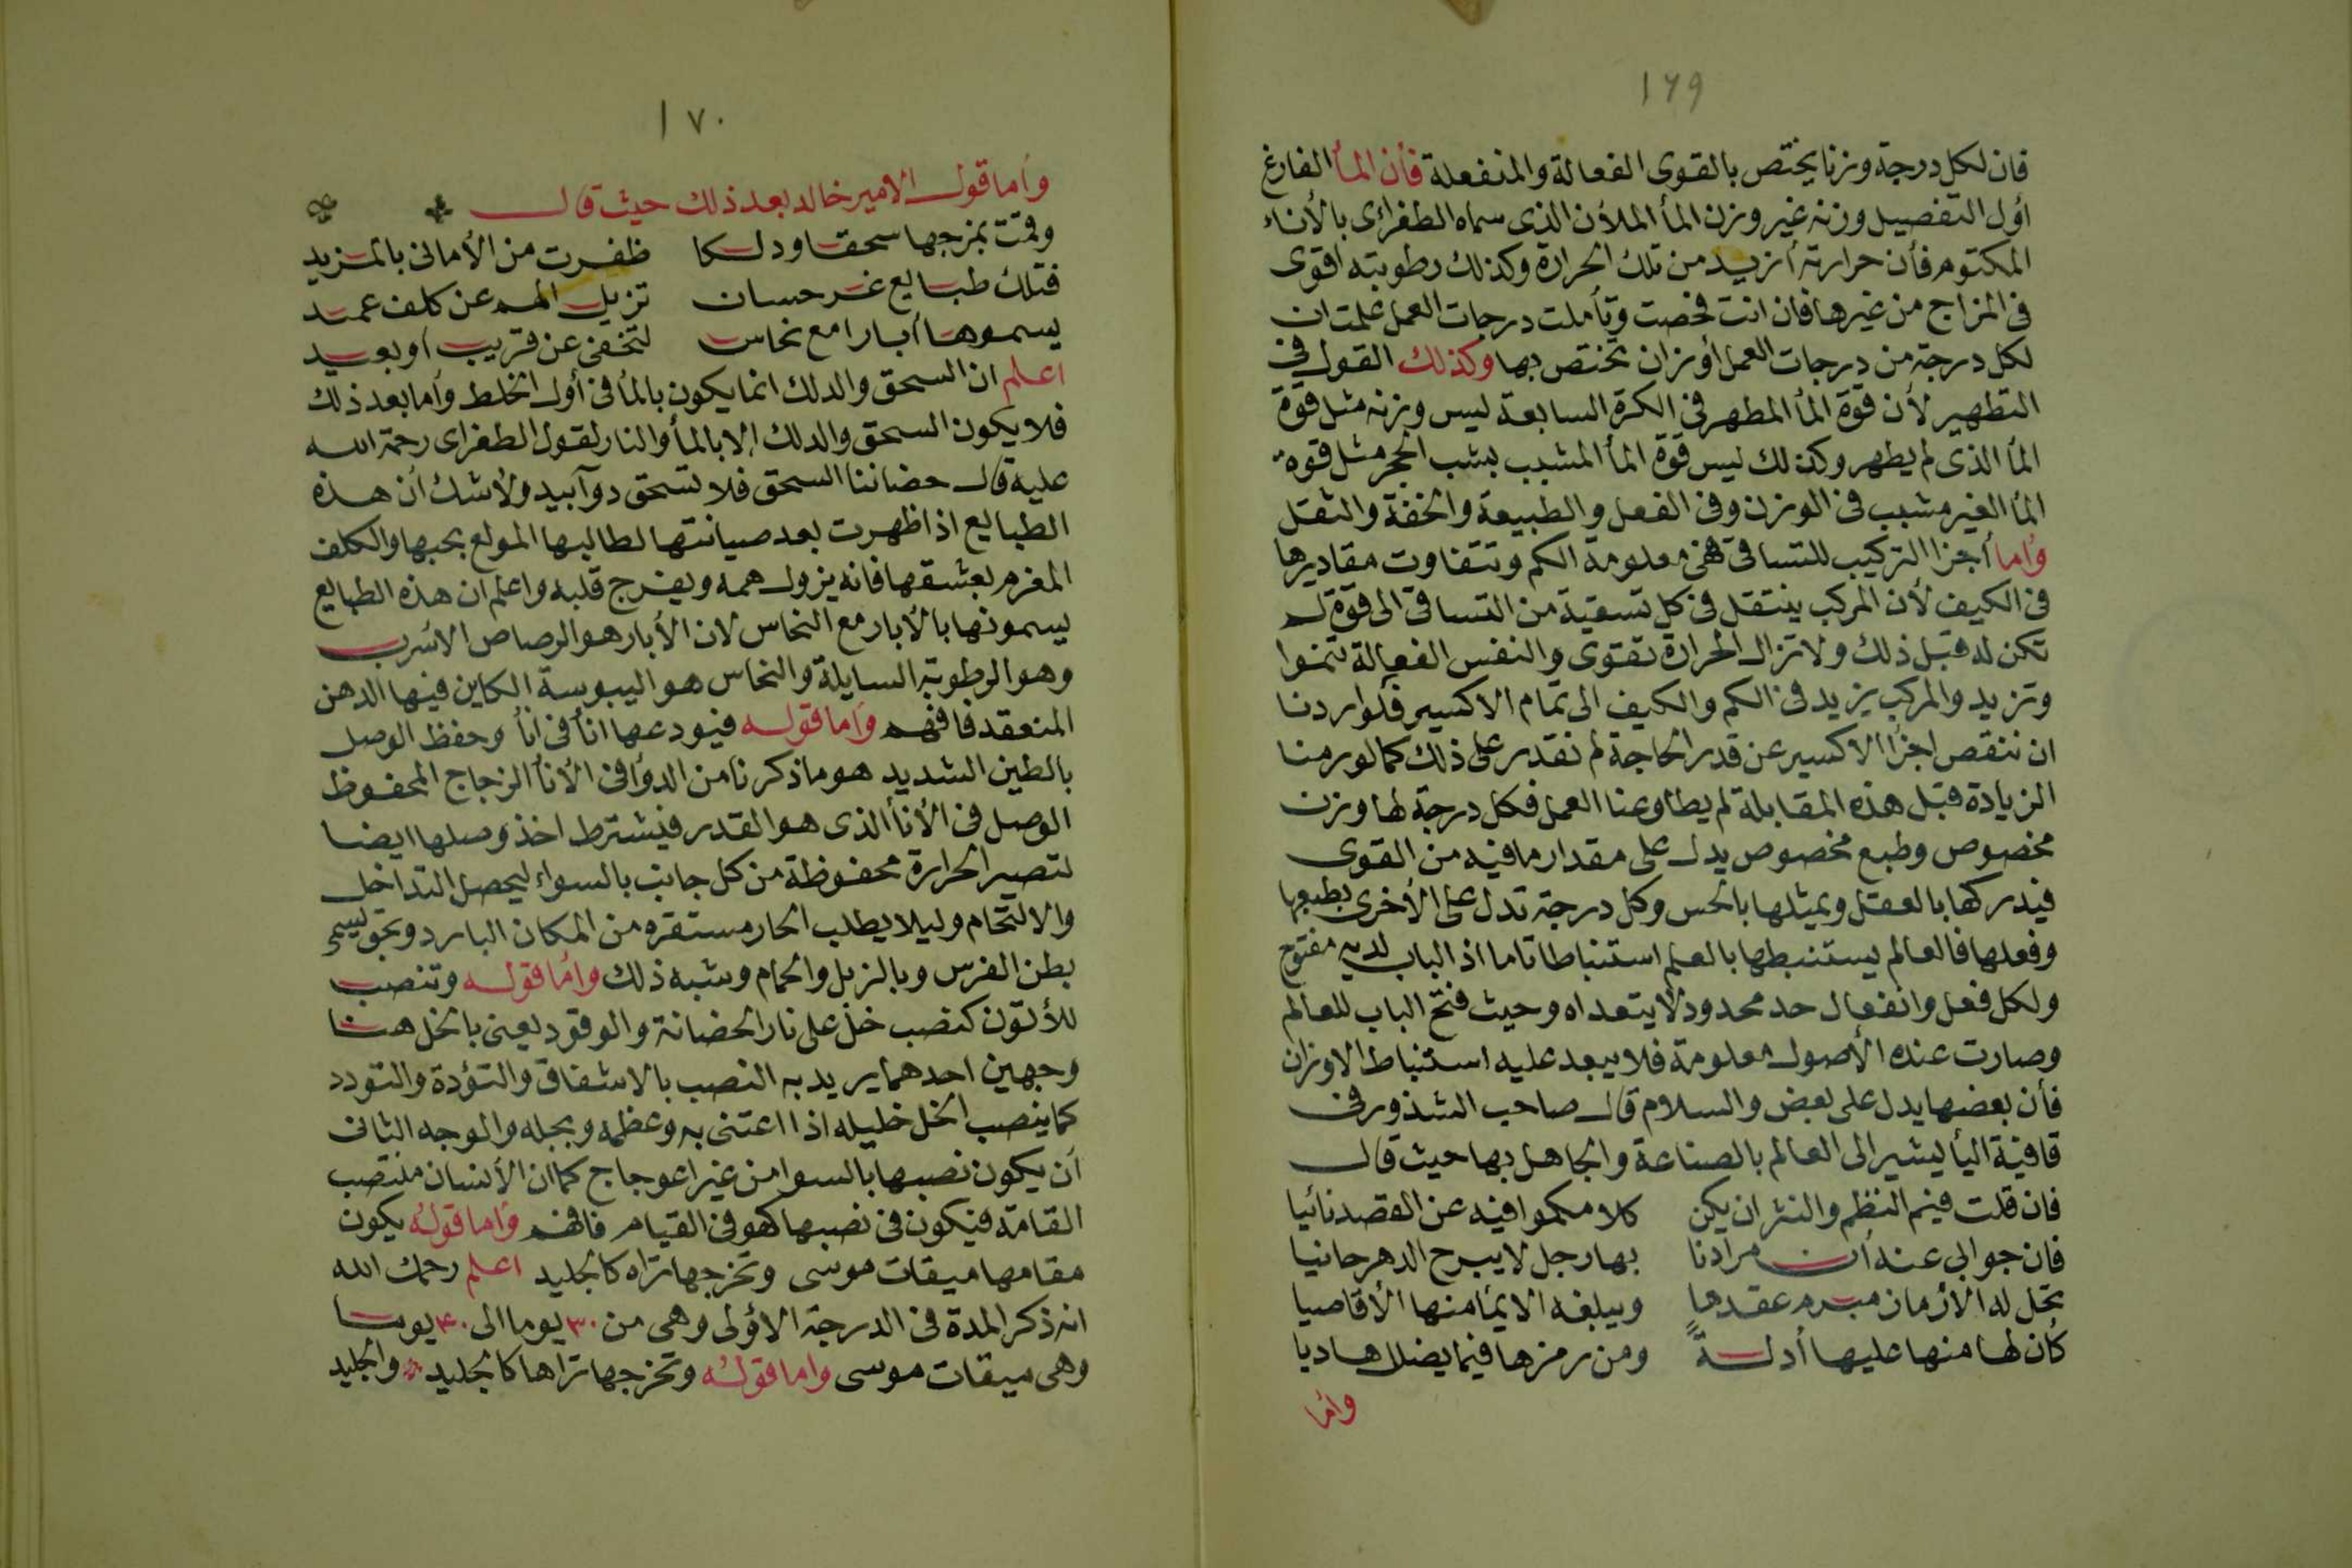 ١٦٩
فان لكل درجة وزنا يختص بالقوى الفعالة والمنفعلة فأن المأ الفارغ
اول التفصيل وزنه غير وزن المأ الملأن الذى سماه الطغرائى بالأناء
المكتوم فأن حرارته أزيد من تلك الحرارة وكذلك رطوبته اقوى
فى المزاج من غيرها فان انت فحصت وتأملت درجات العمل علمت ان
لكل درجة من درجات العمل أوزان تختص بها وكذلك القول فى
التطهير لأن قوة المأ المطهر فى الكرة السابعة ليس وزنه مثل قوة
المأ الذى لم يطهر وكذلك ليس قوة المأ المشبب بشب الحجر مثل قوة
المأ الغير مشبب فى الوزن وفى الفعل والطبيعة والخفة والثقل
وأما أجزا التركيب للتساقى فهى معلومة الكم وتتفاوت مقاديرها
فى الكيف لأن المركب ينتقل فى كل تسقية من التساقى الى قوة لم
تكن له قبل ذلك ولا تزال الحرارة تقوى والنفس الفعالة تنموا
وتزيد والمركب يزيد فى الكم والكيف الى تمام الاكسير فلو اردنا
ان ننقص اجزا الاكسير عن قدر الحاجة لم نقدر على ذلك كما لو رمنا
الزيادة قبل هذه المقابلة لم يطاوعنا العمل فكل درجة لها وزن
مخصوص وطبع مخصوص يدل على مقدار ما فيه من القوى
فيدركها بالعقل ويمثلها بالحس وكل درجة تدل على الأخرى بطبعها
وفعلها فالعالم يستنبطها بالعلم استنباطا تاما اذ الباب لديه مفتوح
ولكل فعل وانفعال حد محدود لا يتعداه وحيث فتح الباب للعالم
وصارت عنده الأصول معلومة فلا يبعد عليه استنباط الاوزان
فأن بعضها يدل على بعض والسلام قال صاحب الشذور فى
قافية اليأ ليشير الى العالم بالصناعة والجاهل بها حيث قال
فان قلت فيم النظم والنثر ان يكن كلامكموا فيه عن القصد نائيا
فان جوابى عنه أن مرادنا بها رجل لا يبرح الدهر حانيا
تحل له الأزمان مبرم عقدها ويبلغه الايمأ منها الأقاصيا
كأن لها منها عليها أدلة ومن رمزها فيما يضل هاديا
وأما
١٧٠
وأما قول الامير خالد بعد ذلك حيث قال
وقمت بمزجها سحقا ودلكا ظفرت من الأمانى بالمزيد
فتلك طبايع غر حسان تزيل الهم عن كلف عميد
يسموها أبارا مع نحاس لتخفى عن قريب أو بعيد
اعلم ان السحق والدلك انما يكون بالمأ فى أول الخلط وأما بعد ذلك
فلا يكون السحق والدلك الا بالمأ والنار لقول الطغراى رحمة الله
عليه قال حضاننا السحق فلا تسحق دوآ بيد ولأشك أن هذه
الطبايع اذا ظهرت بعد صيانتها لطالبها المولع بحبها والكلف
المغرم بعشقها فانه يزول همه ويفرج قلبه واعلم ان هذه الطبايع
يسمونها بالأبار مع النحاس لان الأبار هو الرصاص الاسرب
وهو الرطوبة السايلة والنحاس هو اليبوسة الكاين فيها الدهن
المنعقد فافهم وأما قوله فيودعها انأ فى انأ وحفظ الوصل
بالطين الشديد هو ما ذكرنا من الدوأ فى الأنأ الزجاج المحفوظ
الوصل فى الأنأ الذى هو القدر فيشترط اخذ وصلها ايضا
لتصير الحرارة محفوظة من كل جانب بالسواء ليحصل التداخل
والالتحام وليلا يطلب الحار مستقره من المكان البارد ويحق يسمى
بطن الفرس وبالزبل والحمام وشبه ذلك وأما قوله وتنصب
للأتون كنصب خل على نار الحضانة والوقود يعنى بالخل هنا
وجهين احدهما يريد به النصب بالاشفاق والتؤدة والتودد
كما ينصب الخل خليله اذا اعتنى به وعظمه وبجله والوجه الثانى
أن يكون نصبها بالسوا من غير اعوجاج كما ان الأنسان منتصب
القامة فيكون فى نصبها كهو فى القيام فافهم وأما قوله يكون
مقامها ميقات موسى وتخرجها تراه كالجليد اعلم رحمك الله
انه ذكر المدة فى الدرجة الأولى وهى من ٣٠ يوما الى ٤٠ يوما
وهى ميقات موسى واما قوله وتخرجها تراها كالجليد والجليد